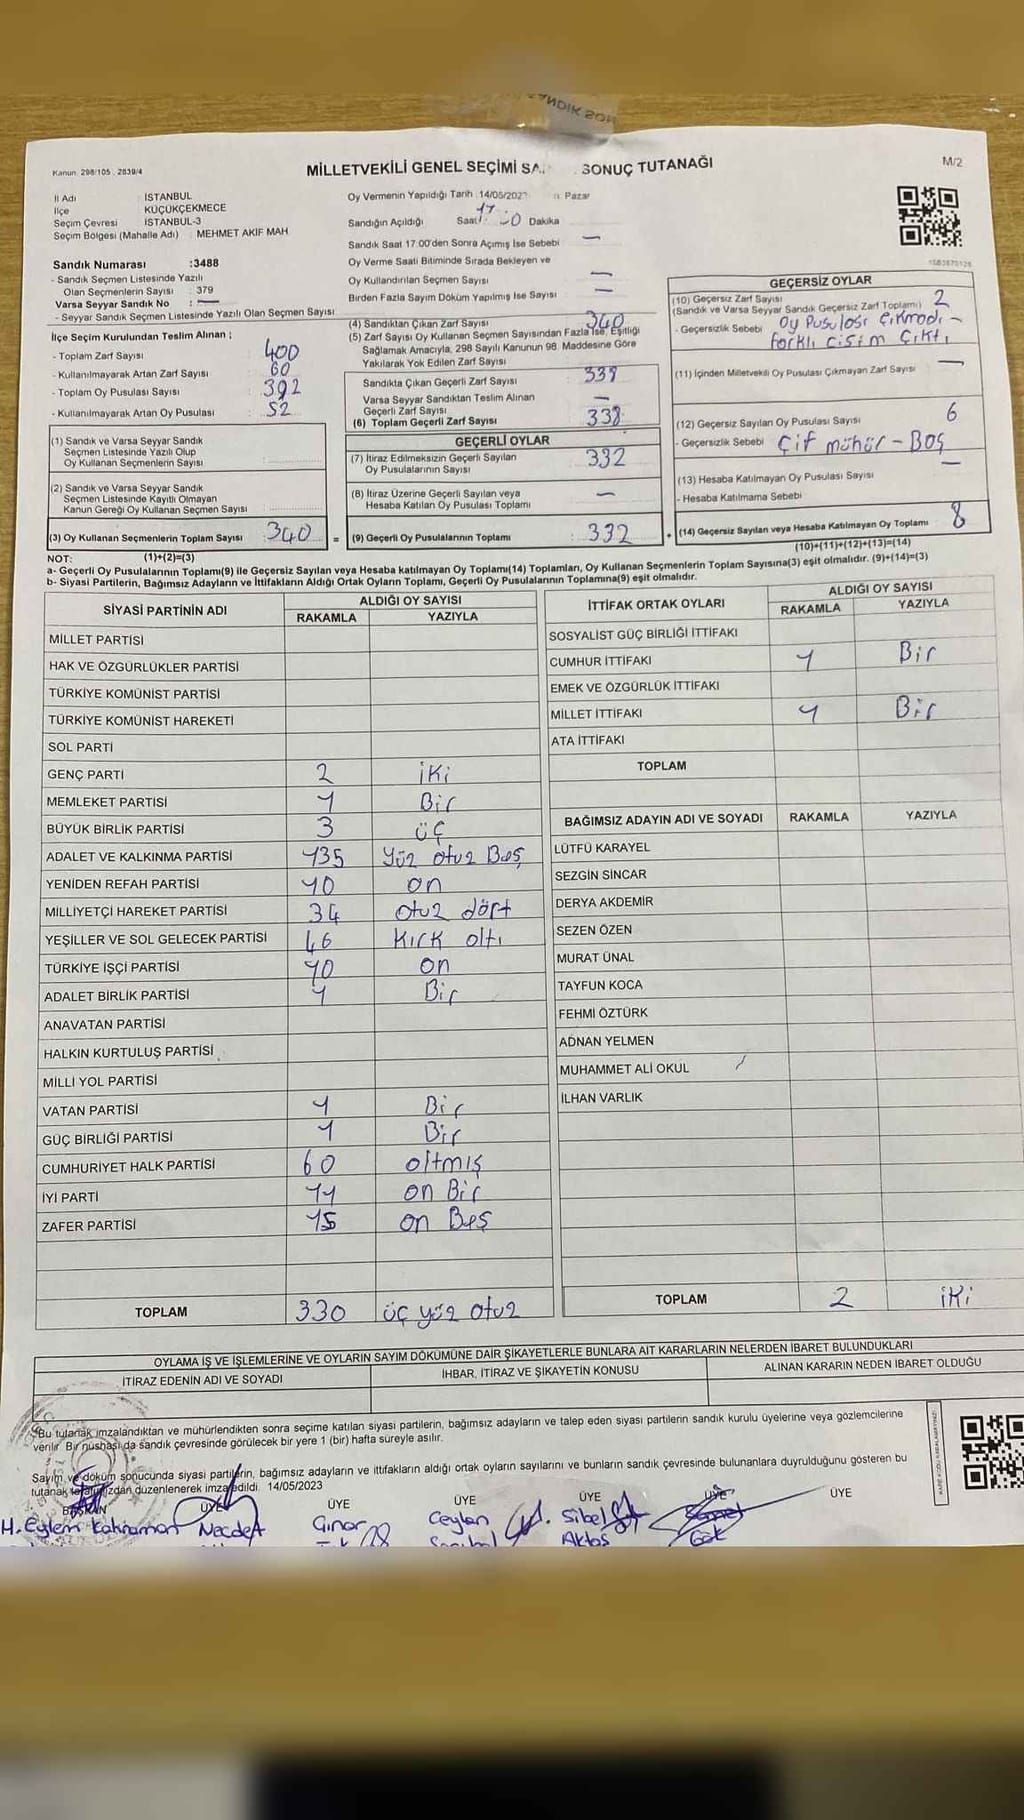 Kanun 298/105 . 2839/4
MİLLETVEKİLİ GENEL SEÇİMİ SA SONUÇ TUTANAĞI
M/2
İl Adı : İSTANBUL
İlçe : KÜÇÜKÇEKMECE
Seçim Çevresi : İSTANBUL-3
Seçim Bölgesi (Mahalle Adı) : MEHMET AKİF MAH
Sandık Numarası :3488
- Sandık Seçmen Listesinde Yazılı
Olan Seçmenlerin Sayısı : 379
Varsa Seyyar Sandık No : —
- Seyyar Sandık Seçmen Listesinde Yazılı Olan Seçmen Sayısı
İlçe Seçim Kurulundan Teslim Alınan ;
- Toplam Zarf Sayısı : 400
- Kullanılmayarak Artan Zarf Sayısı : 60
- Toplam Oy Pusulası Sayısı : 392
- Kullanılmayarak Artan Oy Pusulası : 52
(1) Sandık ve Varsa Seyyar Sandık
Seçmen Listesinde Yazılı Olup
Oy Kullanan Seçmenlerin Sayısı
(2) Sandık ve Varsa Seyyar Sandık
Seçmen Listesinde Kayıtlı Olmayan
Kanun Gereği Oy Kullanan Seçmen Sayısı
(3) Oy Kullanan Seçmenlerin Toplam Sayısı : 340 =
Oy Vermenin Yapıldığı Tarih : 14/05/202 Pazar
Sandığın Açıldığı Saat : 17 Dakika
Sandık Saat 17:00'den Sonra Açımış İse Sebebi —
Oy Verme Saati Bitiminde Sırada Bekleyen ve
Oy Kullandırılan Seçmen Sayısı —
Birden Fazla Sayım Döküm Yapılmış İse Sayısı —
(4) Sandıktan Çıkan Zarf Sayısı 340
(5) Zarf Sayısı Oy Kullanan Seçmen Sayısından Fazla İse, Eşitliği
Sağlamak Amacıyla, 298 Sayılı Kanunun 98. Maddesine Göre
Yakılarak Yok Edilen Zarf Sayısı
Sandıkta Çıkan Geçerli Zarf Sayısı : 338
Varsa Seyyar Sandıktan Teslim Alınan
Geçerli Zarf Sayısı —
(6) Toplam Geçerli Zarf Sayısı : 338
GEÇERLİ OYLAR
(7) İtiraz Edilmeksizin Geçerli Sayılan
Oy Pusulalarının Sayısı : 332
(8) İtiraz Üzerine Geçerli Sayılan veya
Hesaba Katılan Oy Pusulası Toplamı : —
(9) Geçerli Oy Pusulalarının Toplamı : 332 +
GEÇERSİZ OYLAR
(10) Geçersiz Zarf Sayısı
(Sandık ve Varsa Seyyar Sandık Geçersiz Zarf Toplamı) 2
- Geçersizlik Sebebi : Oy Pusulası Çıkmadı -
farklı cisim Çıktı
(11) İçinden Milletvekili Oy Pusulası Çıkmayan Zarf Sayısı —
(12) Geçersiz Sayılan Oy Pusulası Sayısı 6
- Geçersizlik Sebebi : Çif mühür - Boş
(13) Hesaba Katılmayan Oy Pusulası Sayısı —
- Hesaba Katılmama Sebebi
(14) Geçersiz Sayılan veya Hesaba Katılmayan Oy Toplamı : 8
(10)+(11)+(12)+(13)=(14)
NOT: (1)+(2)=(3)
a- Geçerli Oy Pusulalarının Toplamı(9) ile Geçersiz Sayılan veya Hesaba katılmayan Oy Toplamı(14) Toplamları, Oy Kullanan Seçmenlerin Toplam Sayısına(3) eşit olmalıdır. (9)+(14)=(3)
b- Siyasi Partilerin, Bağımsız Adayların ve İttifakların Aldığı Ortak Oyların Toplamı, Geçerli Oy Pusulalarının Toplamına(9) eşit olmalıdır.
SİYASİ PARTİNİN ADI ALDIĞI OY SAYISI
RAKAMLA YAZIYLA
MİLLET PARTİSİ
HAK VE ÖZGÜRLÜKLER PARTİSİ
TÜRKİYE KOMÜNİST PARTİSİ
TÜRKİYE KOMÜNİST HAREKETİ
SOL PARTİ
GENÇ PARTİ 2 iki
MEMLEKET PARTİSİ 1 Bir
BÜYÜK BİRLİK PARTİSİ 3 üç
ADALET VE KALKINMA PARTİSİ 135 Yüz otuz Beş
YENİDEN REFAH PARTİSİ 10 on
MİLLİYETÇİ HAREKET PARTİSİ 34 otuz dört
YEŞİLLER VE SOL GELECEK PARTİSİ 46 Kırk altı
TÜRKİYE İŞÇİ PARTİSİ 10 on
ADALET BİRLİK PARTİSİ 1 Bir
ANAVATAN PARTİSİ
HALKIN KURTULUŞ PARTİSİ
MİLLİ YOL PARTİSİ
VATAN PARTİSİ 1 Bir
GÜÇ BİRLİĞİ PARTİSİ 1 Bir
CUMHURİYET HALK PARTİSİ 60 altmış
İYİ PARTİ 11 on Bir
ZAFER PARTİSİ 15 on Beş
TOPLAM 330 üç yüz otuz
İTTİFAK ORTAK OYLARI ALDIĞI OY SAYISI
RAKAMLA YAZIYLA
SOSYALİST GÜÇ BİRLİĞİ İTTİFAKI
CUMHUR İTTİFAKI 1 Bir
EMEK VE ÖZGÜRLÜK İTTİFAKI
MİLLET İTTİFAKI 1 Bir
ATA İTTİFAKI
TOPLAM
BAĞIMSIZ ADAYIN ADI VE SOYADI RAKAMLA YAZIYLA
LÜTFÜ KARAYEL
SEZGİN SİNCAR
DERYA AKDEMİR
SEZEN ÖZEN
MURAT ÜNAL
TAYFUN KOCA
FEHMİ ÖZTÜRK
ADNAN YELMEN
MUHAMMET ALİ OKUL
İLHAN VARLIK
TOPLAM 2 iki
OYLAMA İŞ VE İŞLEMLERİNE VE OYLARIN SAYIM DÖKÜMÜNE DAİR ŞİKAYETLERLE BUNLARA AİT KARARLARIN NELERDEN İBARET BULUNDUKLARI
İTİRAZ EDENİN ADI VE SOYADI İHBAR, İTİRAZ VE ŞİKAYETİN KONUSU ALINAN KARARIN NEDEN İBARET OLDUĞU
Bu tutanak imzalandıktan ve mühürlendikten sonra seçime katılan siyasi partilerin, bağımsız adayların ve talep eden siyasi partilerin sandık kurulu üyelerine veya gözlemcilerine
verilir. Bir nüshası da sandık çevresinde görülecek bir yere 1 (bir) hafta süreyle asılır.
Sayım ve döküm sonucunda siyasi partilerin, bağımsız adayların ve ittifakların aldığı ortak oyların sayılarını ve bunların sandık çevresinde bulunanlara duyrulduğunu gösteren bu
tutanak tarafımızdan düzenlenerek imza edildi. 14/05/2023
BAŞKAN ÜYE ÜYE ÜYE ÜYE ÜYE ÜYE
H. Eylem Kahraman Necdet Çınar Ceylan Sibel
Aktaş Gök